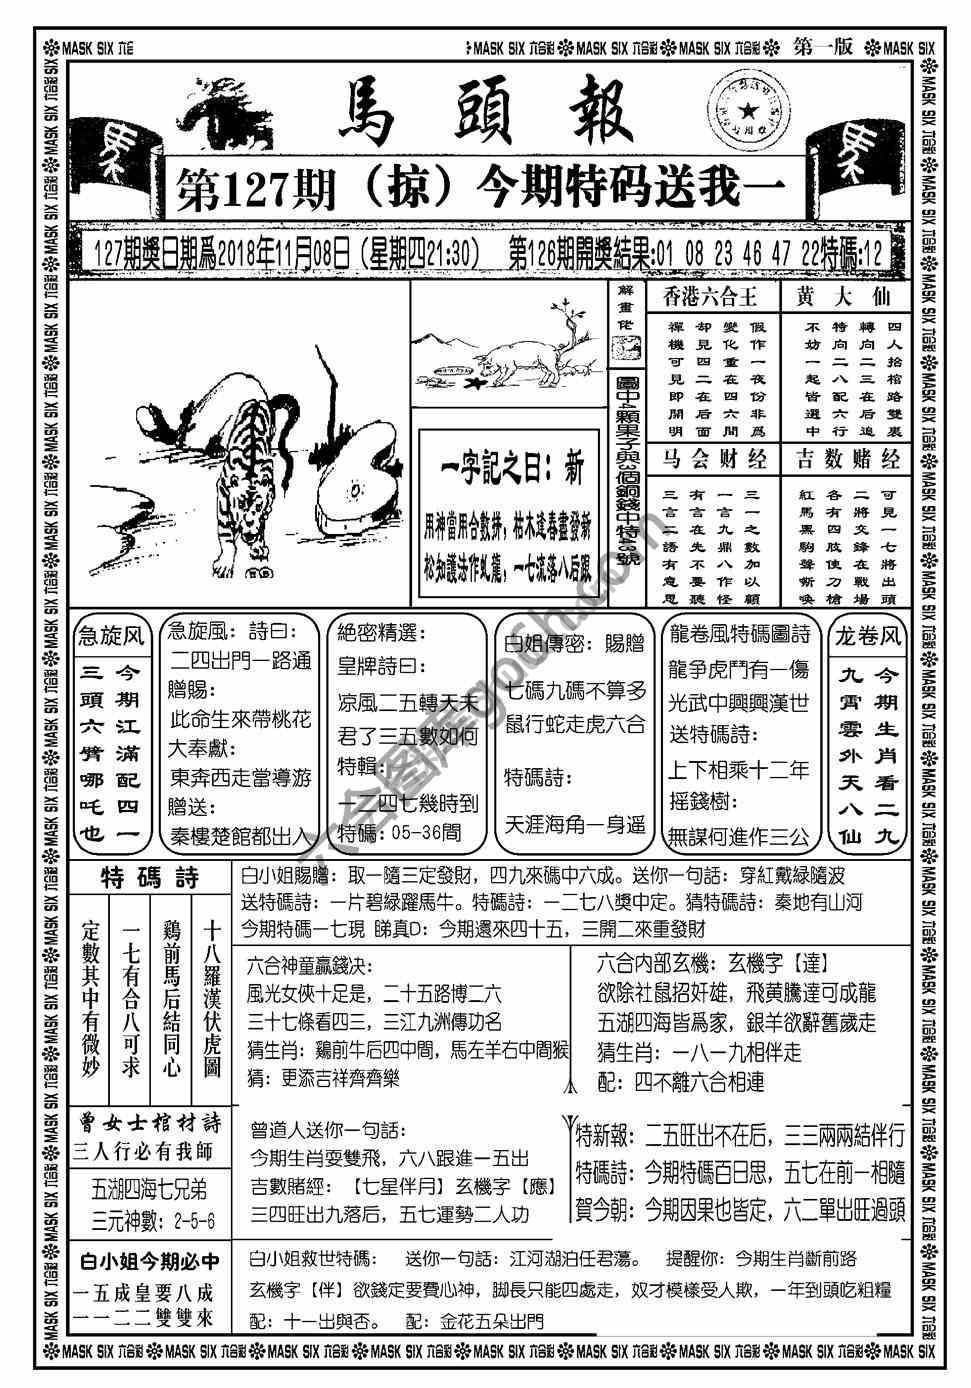 MASK SIX 六合彩 MASK SIX 六合彩 MASK SIX 六合彩 MASK SIX 六合彩 第一版 MASK SIX
馬頭報
第127期（掠）今期特码送我一
127期獎日期爲2018年11月08日（星期四21:30） 第126期開獎結果:01 08 23 46 47 22特碼:12
解畫佬
圖中4顆菓子與3個銅錢中特43號
一字記之日：新
用神當用合數拼，枯木逢春盡發新
松知護法作虬龍，一七流落八后跟
香港六合王
假作一夜份非爲
變化重在四六間
却見四二在后面
禪機可見即開明
黄大仙
四人抬棺路雙裏
轉向二三在后追
特向二八配六行
不妨一起皆選中
马会财经
三一之數加以顧
一言九鼎八作怪
有言在先不要聽
三言二語有意思
吉数赌经
可見一七將出頭
二將交鋒在戰場
各有四肢使刀槍
紅馬黑駒聲嘶喚
急旋风
今期江滿配四一
三頭六臂哪吒也
急旋風：詩曰：
二四出門一路通
贈賜：
此命生來帶桃花
大奉獻：
東奔西走當導游
贈送：
秦樓楚館都出入
絶密精選：
皇牌詩曰：
凉風二五轉天未
君了三五數如何
特輯：
一二四七幾時到
特碼：05-36間
白姐傳密：賜贈
七碼九碼不算多
鼠行蛇走虎六合
特碼詩：
天涯海角一身遥
龍卷風特碼圖詩
龍争虎鬥有一傷
光武中興興漢世
送特碼詩：
上下相乘十二年
摇錢樹：
無謀何進作三公
龙卷风
今期生肖看二九
九霄雲外天八仙
特碼詩
十八羅漢伏虎圖
鷄前馬后結同心
一七有合八可求
定數其中有微妙
白小姐賜贈：取一隨三定發財，四九來碼中六成。送你一句話：穿紅戴緑隨波
送特碼詩：一片碧緑躍馬牛。特碼詩：一二七八獎中定。猜特碼詩：秦地有山河
今期特碼一七現 睇真D：今期還來四十五，三開二來重發財
六合神童贏錢决：
風光女俠十足是，二十五路博二六
三十七條看四三，三江九洲傳功名
猜生肖：鷄前牛后四中間，馬左羊右中間猴
猜：更添吉祥齊齊樂
六合内部玄機：玄機字【達】
欲除社鼠招奸雄，飛黄騰達可成龍
五湖四海皆爲家，銀羊欲辭舊歲走
猜生肖：一八一九相伴走
配：四不離六合相連
曾女士棺材詩
三人行必有我師
五湖四海七兄弟
三元神數：2-5-6
曾道人送你一句話：
今期生肖耍雙飛，六八跟進一五出
吉數賭經：【七星伴月】玄機字【應】
三四旺出九落后，五七運勢二人功
特新報：二五旺出不在后，三三兩兩結伴行
特碼詩：今期特碼百日思，五七在前一相隨
賀今朝：今期因果也皆定，六二單出旺過頭
白小姐今期必中
一五成皇要八成
一一二二雙雙來
白小姐救世特碼： 送你一句話：江河湖泊任君蕩。 提醒你：今期生肖斷前路
玄機字【伴】欲錢定要費心神，脚長只能四處走，奴才模樣受人欺，一年到頭吃粗糧
配：十一出與否。 配：金花五朵出門
MASK SIX 六合彩 MASK SIX 六合彩 MASK SIX 六合彩 MASK SIX 六合彩 MASK SIX 六合彩 MASK SIX 六合彩 MASK SIX 六合彩 MASK SIX 六合彩 MASK SIX